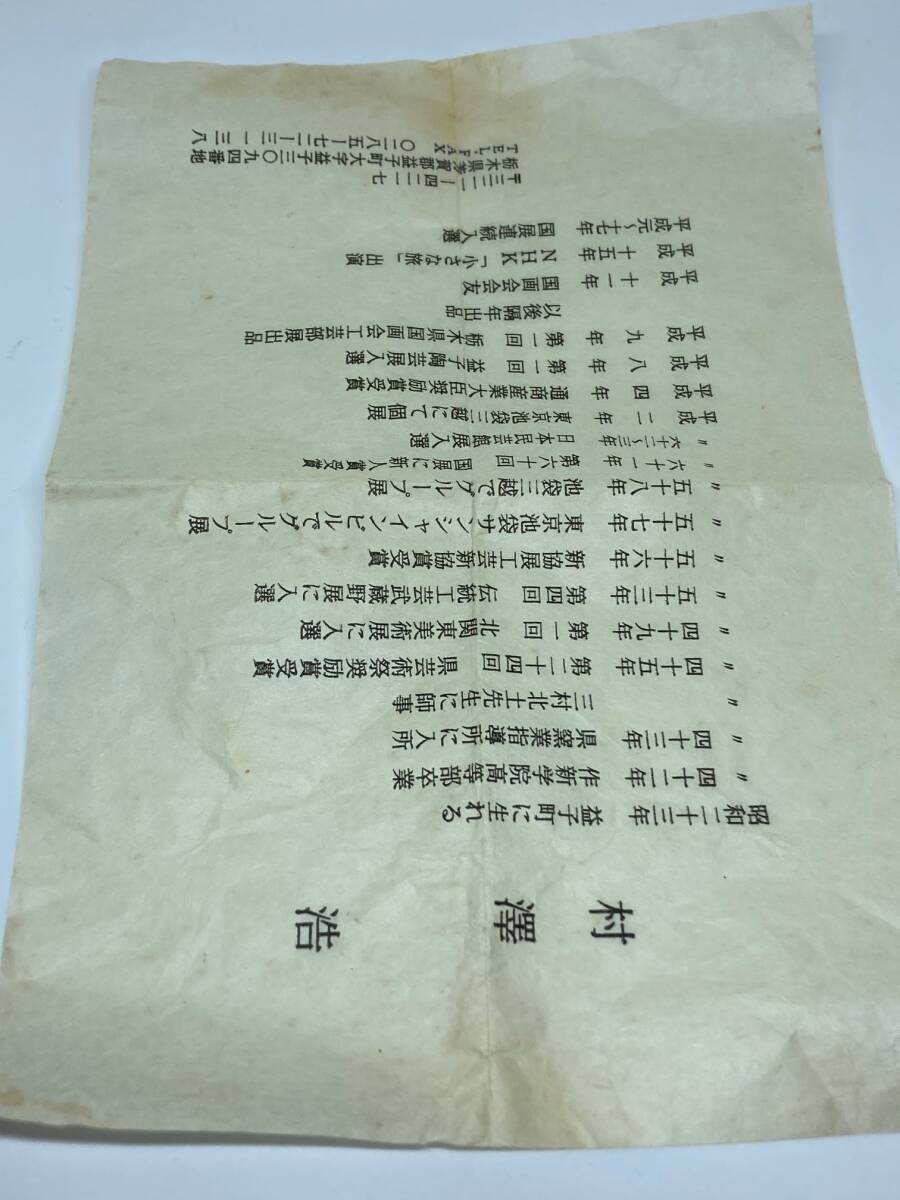 村澤 浩
昭和二十三年 益子町に生れる
〃 四十二年 作新学院高等部卒業
〃 四十三年 県窯業指導所に入所
〃 三村北土先生に師事
〃 四十五年 第二十四回 県芸術祭奨励賞受賞
〃 四十九年 第一回 北関東美術展に入選
〃 五十三年 第四回 伝統工芸武蔵野展に入選
〃 五十六年 新協展工芸新協賞受賞
〃 五十七年 東京池袋サンシャインビルでグループ展
〃 五十八年 池袋三越でグループ展
〃 六十一年 第六十回 国展に新人賞受賞
〃 六十二〜三年 日本民芸館展入選
平成 二 年 東京池袋三越にて個展
平成 四 年 通商産業大臣奨励賞受賞
平成 八 年 第一回 益子陶芸展入選
平成 九 年 第一回 栃木県国画会工芸部展出品
以後隔年出品
平成 十一年 国画会会友
平成 十五年 NHK「小さな旅」出演
平成元〜十七年 国展連続入選
〒三二一―四二一七
栃木県芳賀郡益子町大字益子三〇九四番地
TEL.FAX 〇二八五―七二―三一三八